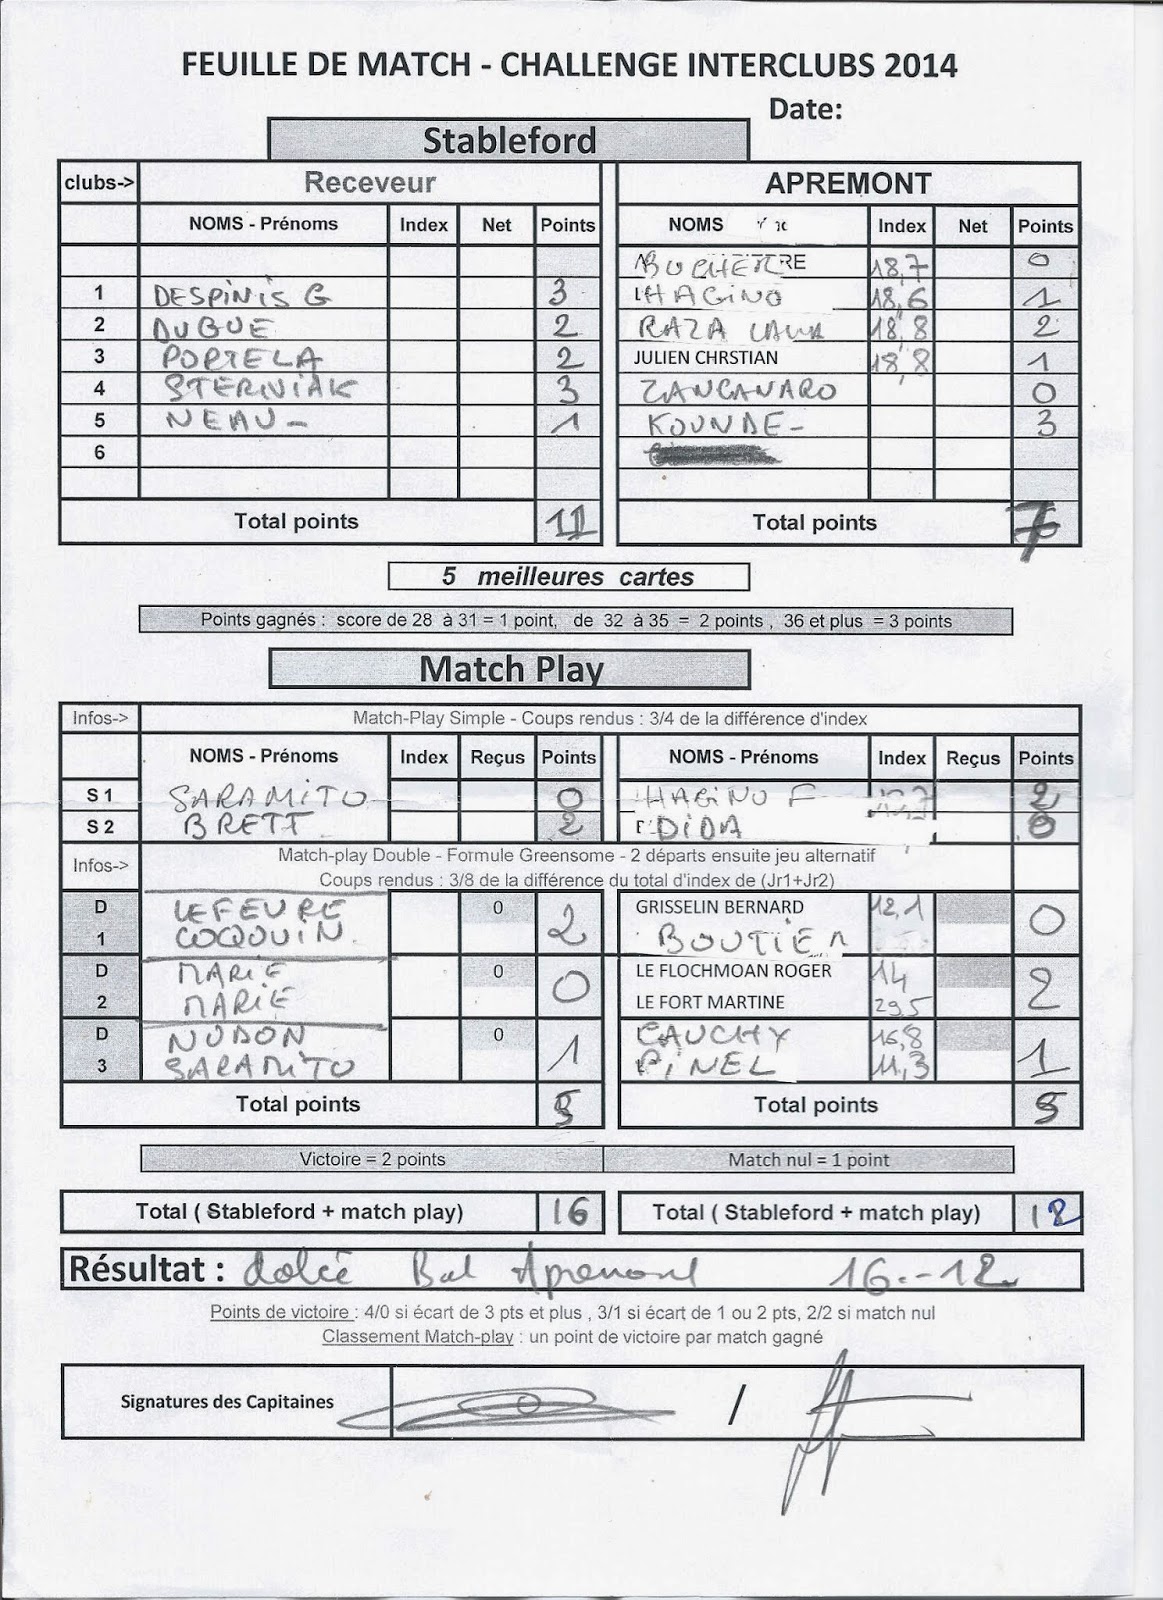 FEUILLE DE MATCH - CHALLENGE INTERCLUBS 2014
Date:
Stableford
clubs-> Receveur APREMONT
NOMS - Prénoms Index Net Points NOMS Index Net Points
18,7 0
1 DESPINIS G 3 HAGINO 18,6 1
2 DUBUE 2 RAZA 18,8 2
3 PORTELA 2 JULIEN CHRSTIAN 18,8 1
4 STERNIAK 3 ZANGANARO 0
5 NEAU - 1 KOUNDE - 3
6
Total points 11 Total points 7
5 meilleures cartes
Points gagnés : score de 28 à 31 = 1 point, de 32 à 35 = 2 points , 36 et plus = 3 points
Match Play
Infos-> Match-Play Simple - Coups rendus : 3/4 de la différence d'index
NOMS - Prénoms Index Reçus Points NOMS - Prénoms Index Reçus Points
S 1 SARAMITO 0 HAGINO F 2
S 2 BRETT 2 DIDA 0
Infos-> Match-play Double - Formule Greensome - 2 départs ensuite jeu alternatif
Coups rendus : 3/8 de la différence du total d'index de (Jr1+Jr2)
D LEFEVRE 0 2 GRISSELIN BERNARD 12,1 0
1 COQOUIN BOUTIER
D MARIE 0 0 LE FLOCHMOAN ROGER 14 2
2 MARIE LE FORT MARTINE 29,5
D NUDON 0 1 CAUCHY 16,8 1
3 SARAMITO PINEL 11,3
Total points 5 Total points 5
Victoire = 2 points Match nul = 1 point
Total ( Stableford + match play) 16 Total ( Stableford + match play) 12
Résultat : dolcé Bat Apremont 16.-12
Points de victoire : 4/0 si écart de 3 pts et plus , 3/1 si écart de 1 ou 2 pts, 2/2 si match nul
Classement Match-play : un point de victoire par match gagné
Signatures des Capitaines /